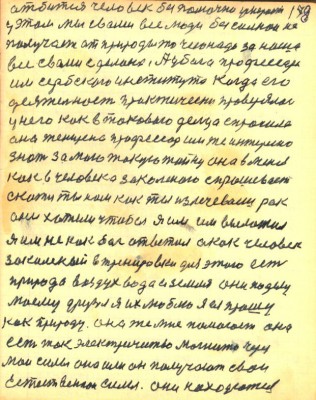 отбится человек бы помочно умереть 189
у этом мы с вами все люди бы силной не
получает от природы то что надо за наша
все с вами сделано, Лубого профессора
им сербского института когда его
деятельность практически проверялась
у него как в такового делца спросила
она женщина профессор им же интересно
знать за мого такую тайну она вменя
как в человека закаленого спрашевает
скажи ты нам как ты излечеваеш рак
они хотели чтобы я им им выложил
я им не как бог ответил а как человек
закалекой в тренировки для этого есть
природа воздух вода и земля они подему
моему друзья я их люблю я их прошу
как природу. она же мне помогает она
есть ток электричество магнито
мои силы она им он получают свои
Естественои силы. они находятся